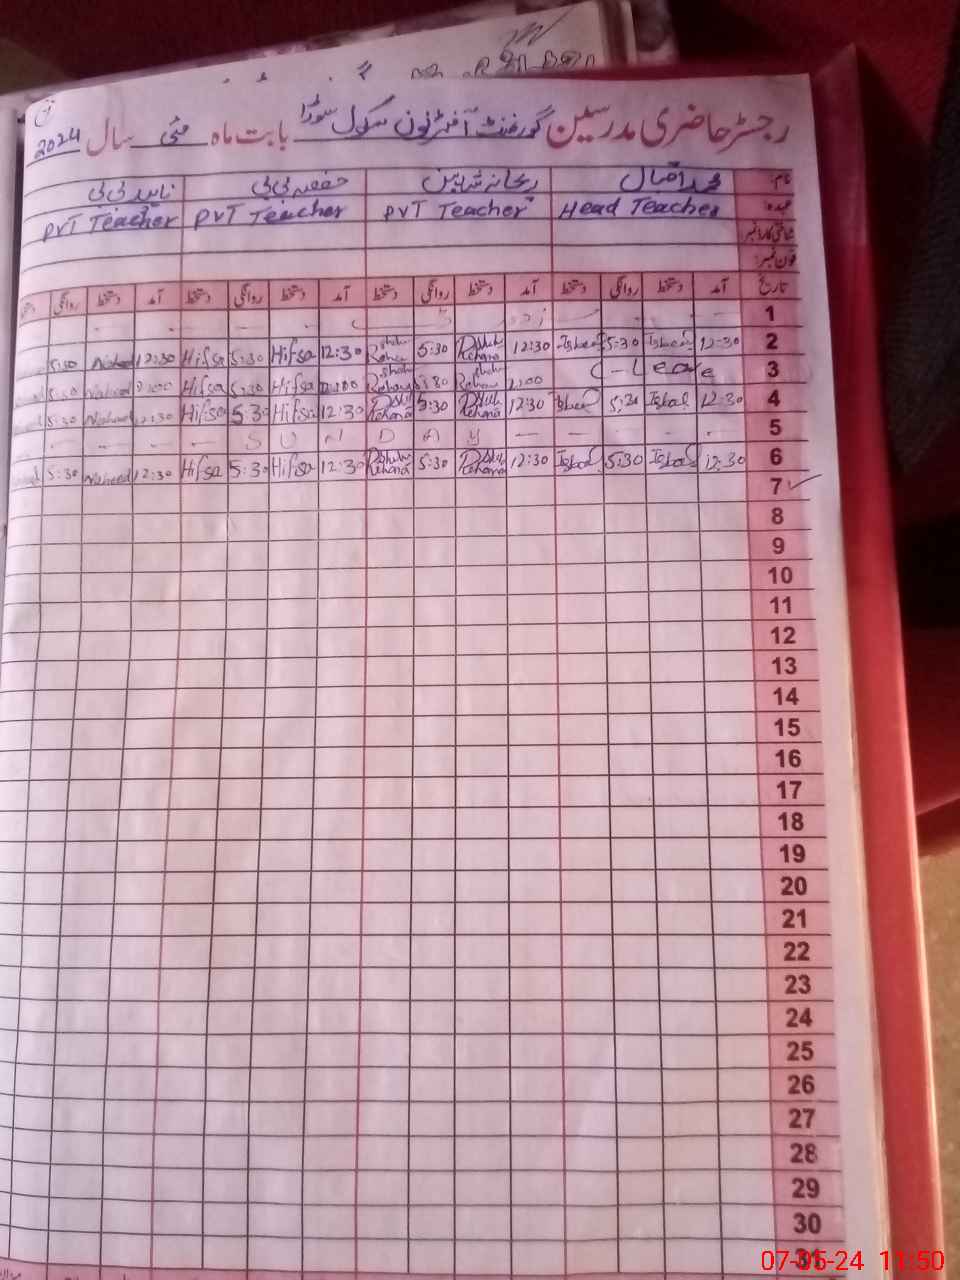 رجسٹر حاضری مدرسین گورنمنٹ آفٹرنون سکول سوڑا بابت ماہ مئی سال 2024
نام: محمد اقبال ریحانہ شاہین حفصہ بی بی ناہید بی بی
عہدہ: Head Teacher PVT Teacher PVT Teacher PVT Teacher
شناختی کارڈ نمبر:
فون نمبر:
تاریخ آمد دستخط روانگی دستخط آمد دستخط روانگی دستخط آمد دستخط روانگی دستخط آمد دستخط روانگی
1
2 12:30 5:30 12:30 Rehana 5:30 12:30 Hifsa 5:30 Hifsa 12:30 Naheed 5:30
3 C-Leave 12:00 5:30 12:00 Hifsa 5:30 Hifsa 12:00 Naheed 5:30
4 12:30 Iqbal 5:30 12:30 Rehana 5:30 Rehana 12:30 Hifsa 5:30 Hifsa 12:30 Naheed 5:30
5 S U N D A Y
6 12:30 Iqbal 5:30 Iqbal 12:30 Rehana 5:30 Rehana 12:30 Hifsa 5:30 Hifsa 12:30 Naheed 5:30
7
8
9
10
11
12
13
14
15
16
17
18
19
20
21
22
23
24
25
26
27
28
29
30
31
07-05-24 11:50